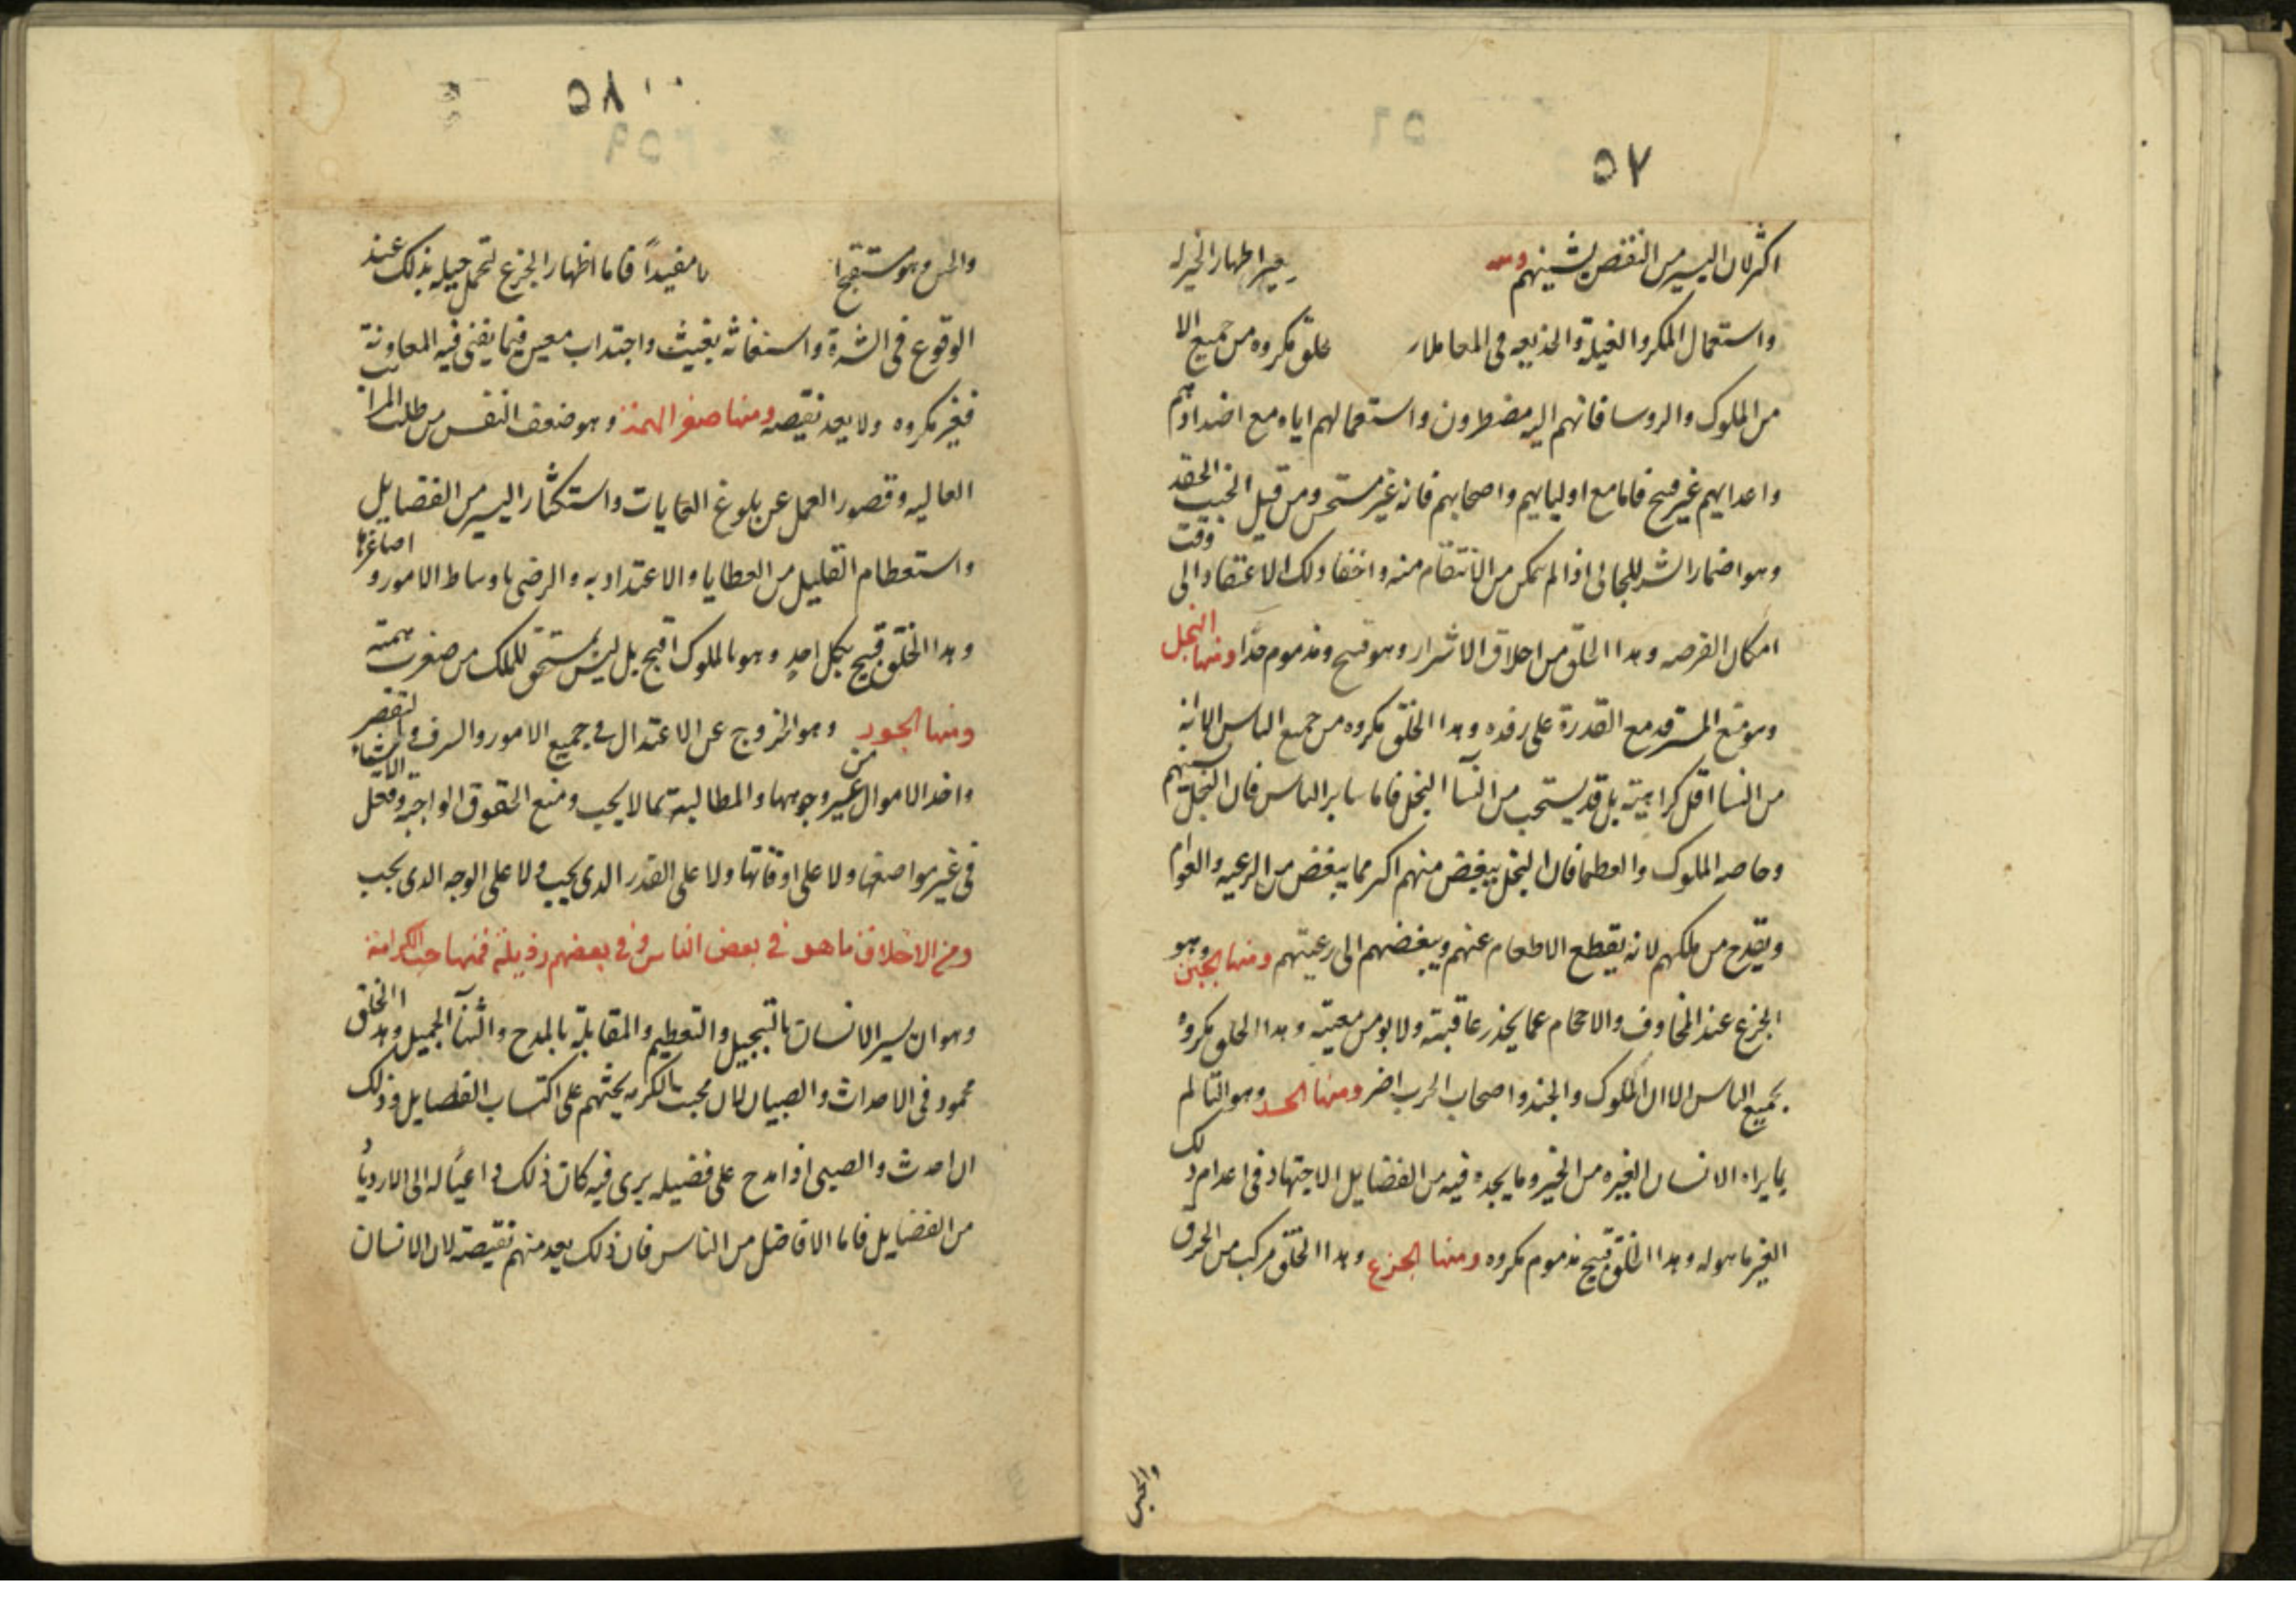 ٥٧
اكثر لان اليسير من النقص يشينهم اظهار الخير له
واستعمال المكر والغيلة والخديعه فى المعاملات مكروه من جميع الا
من الملوك والروسا فانهم اليه مضطرون واستعمالهم اياه مع اضدادهم
واعدايهم غير قبيح فاما مع اوليايهم واصحابهم فانه غير مستحسن ومن قبيل الخبث الحقد
وهو اضمار الشر للجانى اذا لم يتمكن من الانتقام منه واخفا ذلك الاعتقاد الى وقت
امكان الفرصه وهدا الخلق من اخلاق الاشرار وهو قبيح ومذموم جدا ومنها البخل
وهو منع المسترفد مع القدرة على رفده وهدا الخلق مكروه من جميع الناس الا انه
من النسا اقل كراهيته بل قد يستحب من النسآ البخل فاما ساير الناس فان البخل يشينهم
وخاصه الملوك والعظما فان البخل يبغض منهم اكثر مما يبغض من الرعيه والعوام
ويقدح من ملكهم لانه يقطع الاطعام عنهم ويبغضهم الى رعيتهم ومنها الجبن وهو
الجزع عند المخاوف والاحجام عما يحذر عاقبته ولا يومن مغبته وهدا الخلق مكروه
بجميع الناس الا ان الملوك والجند واصحاب الحرب اضر ومنها الحسد وهو التالم
بما يراه الانسان لغيره من الخير وما يجده فيه من الفضايل الاجتهاد فى اعدام ذلك
الغير ما هو له وهدا الخلق قبيح مذموم مكروه ومنها الجزع وهدا الخلق مركب من الخرق
والجبن
٥٨
والجبن وهو مستقبح ا مفيداً فاما اظهار الجزع لتحمل حيله بذلك عند
الوقوع فى الشدة واستغاثة بغيث واجتداب معين فيما يغنى فيه المعاونة
فغير مكروه ولا يعد نقيصه ومنها صغر الهمة وهو ضعف النفس من طلب المراتب
العاليه وقصور العمل عن بلوغ الغايات واستكثار اليسير من الفضايل
واستعظام القليل من العطايا والاعتداد به والرضى باوساط الامور و اصاغرها
وهدا الخلق قبيح بكل احد وهو بالملوك اقبح بل ليس بمستحق للملك من صغرت همته
ومنها الجور وهو الخروج عن الاعتدال فى جميع الامور والسرف والتقصير
واخذ الاموال من غير وجوهها والمطالبة بما لا يجب ومنع الحقوق الواجبة وفعل الاشياء
فى غير مواضعها ولا على اوقاتها ولا على القدر الدى يجب ولا على الوجه الدى يجب
ومن الاخلاق ما هو فى بعض الناس وفى بعضهم رذيلة فمنها حب الكرامة
وهو ان يسر الانسان بالتبجيل والتعظيم والمقابلة بالمدح والثنآ الجميل وهدا الخلق
محمود فى الاحداث والصبيان لان محبت الكرمه يحثهم على اكتساب الفضايل وذلك
ان الحدث والصبى اذا مدح على فضيله يرى فيه كان ذلك داعياً له الى الازدياد
من الفضايل فاما الافاضل من الناس فان ذلك يعد منهم نقيصة لان الانسان